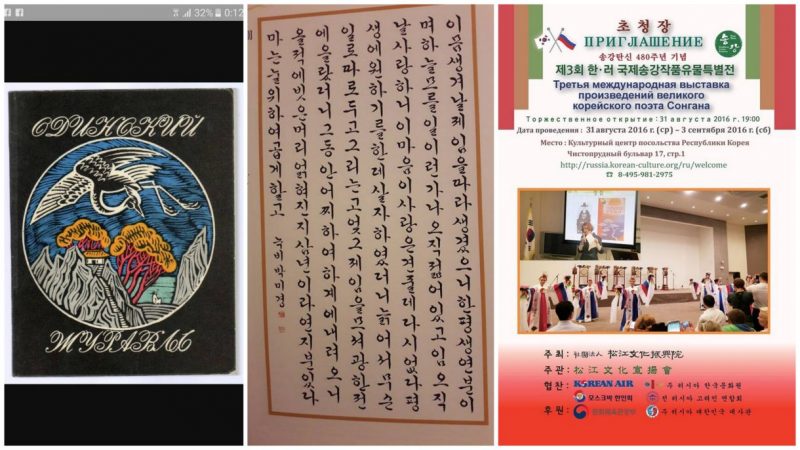 32% 0:12
ОДИНОКИЙ
ЖУРАВЛЬ
이몸생겨날제임을따라생겼으니한평생연분이
며하늘모를일이런가나오직젊어있고임오직
날사랑하니이마음이사랑을견줄데다시없다평
생에원하기를한데살자하였더니늙어서무슨
일로따로두고그리는고엊그제임을뫼셔광한전
에올랐더니그동안어찌하여하계에내려오니
올적에빗은머리얽힌지삼년이라연지분있다
마는눌위하여곱게할고
박미경
초청장
ПРИГЛАШЕНИЕ
송강
송강탄신 480주년 기념
제3회 한·러 국제송강작품유물특별전
Третья международная выставка
произведений великого
корейского поэта Сонгана
Торжественное открытие: 31 августа 2016 г. 19:00
Дата проведения : 31 августа 2016 г. (ср) – 3 сентября 2016 г. (сб)
Место : Культурный центр посольства Республики Корея
Чистопрудный бульвар 17, стр.1
http://russia.korean-culture.org/ru/welcome
☎ 8-495-981-2975
주최 : 社團法人 松江文化振興院
주관 : 松江文化宣揚會
협찬 : KOREAN AIR 주 러시아 한국문화원
모스크바 한인회 전 러시아 고려인 연합회
후원 : 문화체육관광부 주 러시아 대한민국 대사관